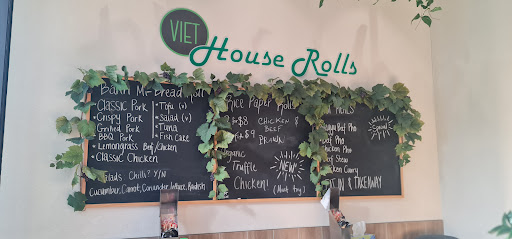 VIET
House Rolls
Banh Mi Bread Roll
Classic Pork
Crispy Pork
Grilled Pork
BBQ Pork
Lemongrass Beef/Chicken
Classic Chicken
Tofu (v)
Salad (v)
Tuna
Fish Cake
Chilli? Y/N
Cucumber, Carrot, Coriander, lettuce, Radish
Rice Paper Rolls
$8 CHICKEN &
BEEF
$9 PRAWN
Organic
Truffle
Chicken!
NEW!
(Must try)
Special
Beef Pho
Beef Pho
Chicken Pho
Beef Stew
Chicken Curry
IN & TAKEAWAY